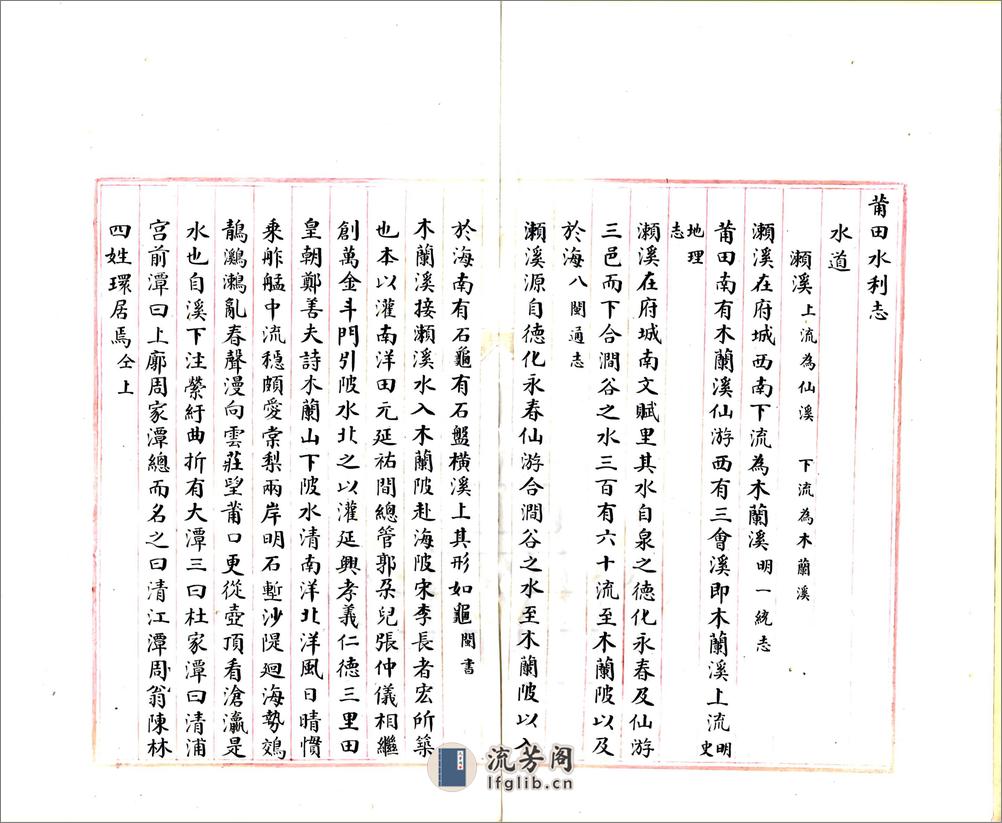 莆田水利志
水道
瀨溪上流為仙溪 下流為木蘭溪
瀨溪在府城西南下流為木蘭溪明一統志
莆田南有木蘭溪仙游西有三會溪即木蘭溪上流明史
地理志
瀨溪在府城南文賦里其水自泉之德化永春及仙游
三邑而下合澗谷之水三百有六十流至木蘭陂以及
於海八閩通志
瀨溪源自德化永春仙游合澗谷之水至木蘭陂以入
於海南有石龜有石盤橫溪上其形如龜閩書
木蘭溪接瀨溪水入木蘭陂赴海陂宋李長者宏所築
也本以灌南洋田元延祐間總管郭朶兒張仲儀相繼
創萬金斗門引陂水北之以灌延興孝義仁德三里田
皇朝鄭善夫詩木蘭山下陂水清南洋北洋風日晴慣
乘舴艋中流穩頗愛棠梨兩岸明石塹沙隄迴海勢鵁
鶄鸂鶒亂春聲漫向雲莊望莆口更從壺頂看滄瀛是
水也自溪下注縈紆曲折有大潭三曰杜家潭曰清浦
宮前潭曰上廓周家潭總而名之曰清江潭周翁陳林
四姓環居焉仝上
流芳阁
lfglib.cn